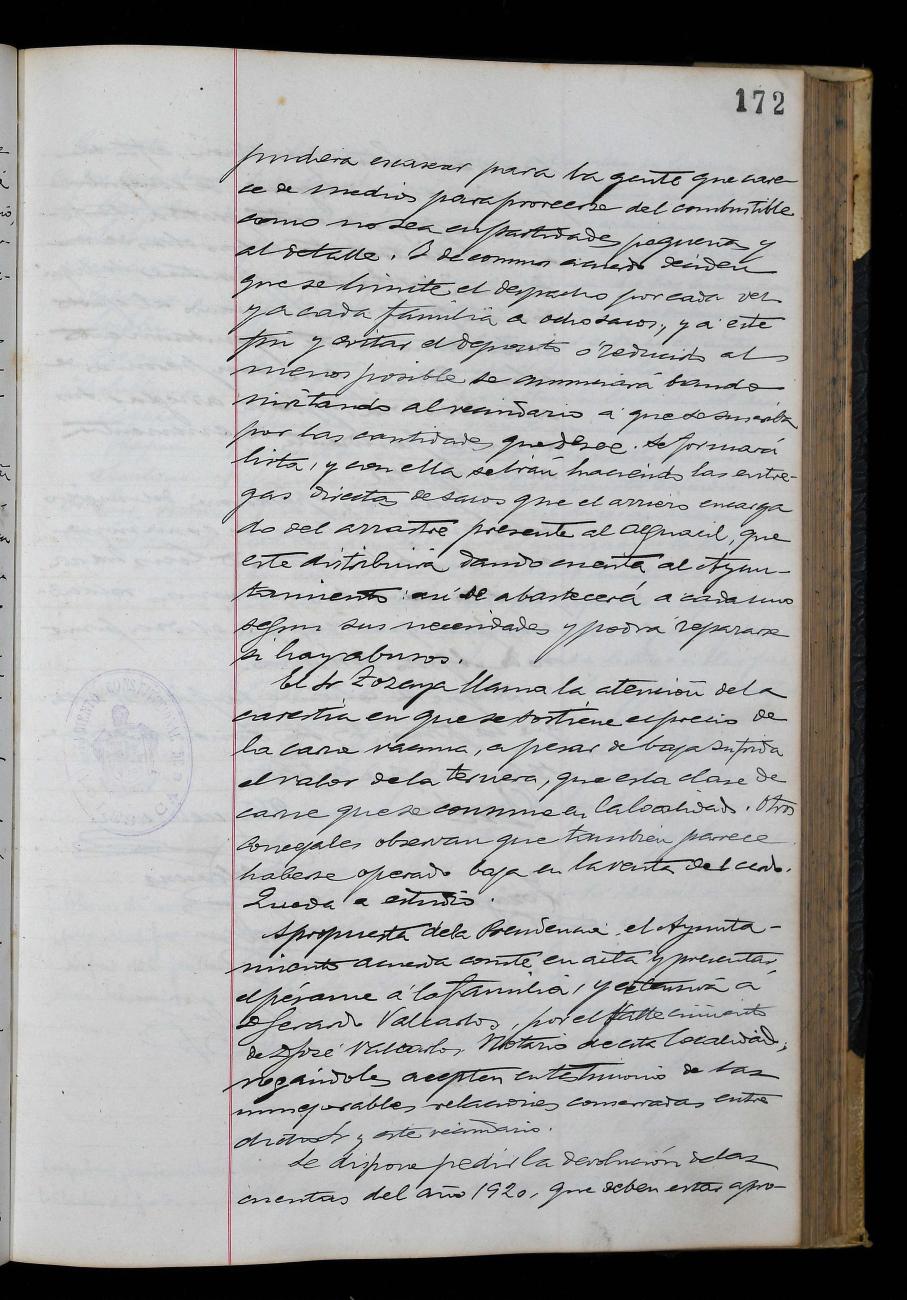 172
pudiera escasear para la gente que care-
ce de medios para proveerse del combustible
como no sea en partidas pequeñas y
al detalle. Y de comun acuerdo deciden
que se limite el despacho por cada vez
y a cada familia a ocho sacos, y a este
fin y evitar el deposito o reducirlo al
menos posible se anunciará bando
invitando al vecindario a que se suscriba
por las cantidades que desee. Se formará
lista, y con ella se irán haciendo las entre-
gas directas de sacos que el arriero encarga
do del arrastre presente al Alguacil, que
este distribuirá dando cuenta al Ayun-
tamiento: así se abastecerá a cada uno
segun sus necesidades y podrá repararse
si hay abusos.
El Sr Lozoya llama la atención de la
carestía en que se sostiene el precio de
la carne vacuna, a pesar de baja sufrida
el valor de la ternera, que es la clase de
carne que se consume en la localidad. Otros
concejales observan que tambien parece
haberse operado baja en la venta del cerdo.
Queda a estudio.
A propuesta de la Presidencia el Ayunta-
miento acuerda conste en acta y presentar
el pésame á la familia, y extensivo á
D Gerardo Valcarlos, por el fallecimiento
de D José Valcarlos Notario de esta localidad;
rogándoles acepten en testimonio de las
inmejorables relaciones conservadas entre
dicho Sr y este vecindario.
Se dispone pedir la devolución de las
cuentas del año 1920, que deben estar apro-